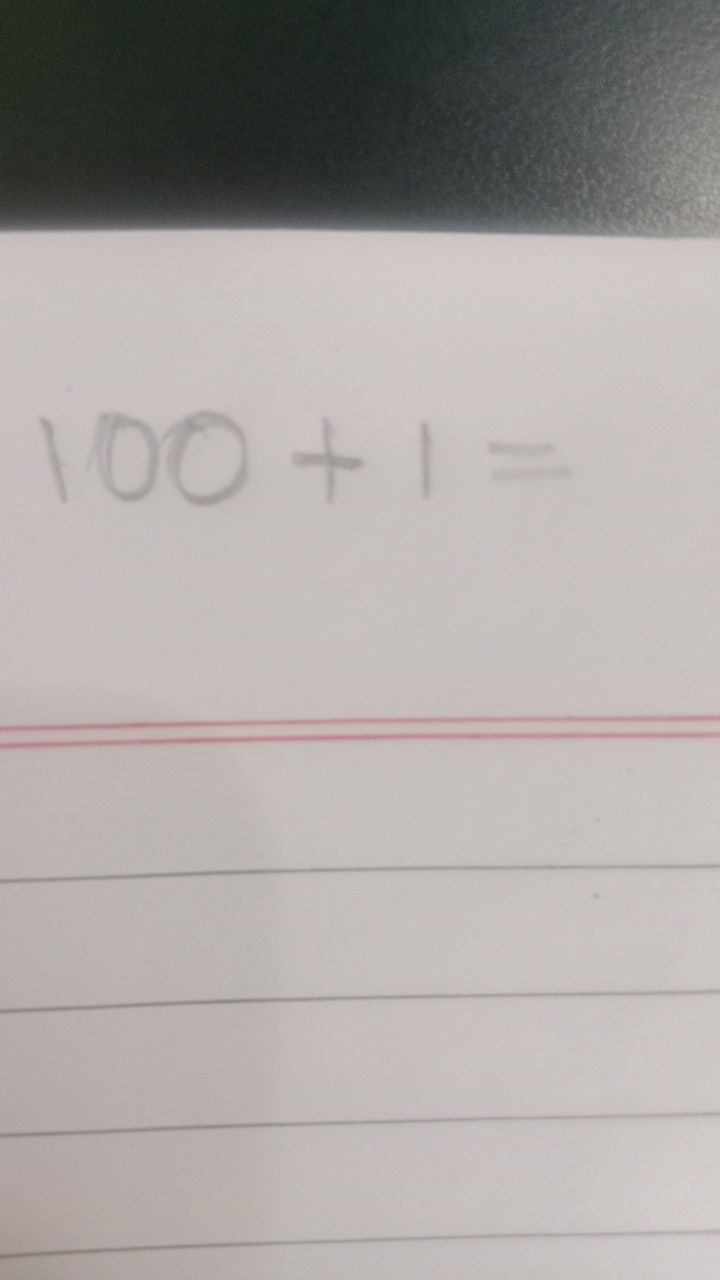 100 + 1 =